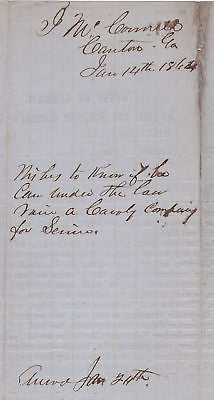 J Mc Connell
Canton Ga
Jan 14th 1864
Wishes to Know if he
Can under the law
raise a Cavaly Company
for Service.
Answd Jan 24th.